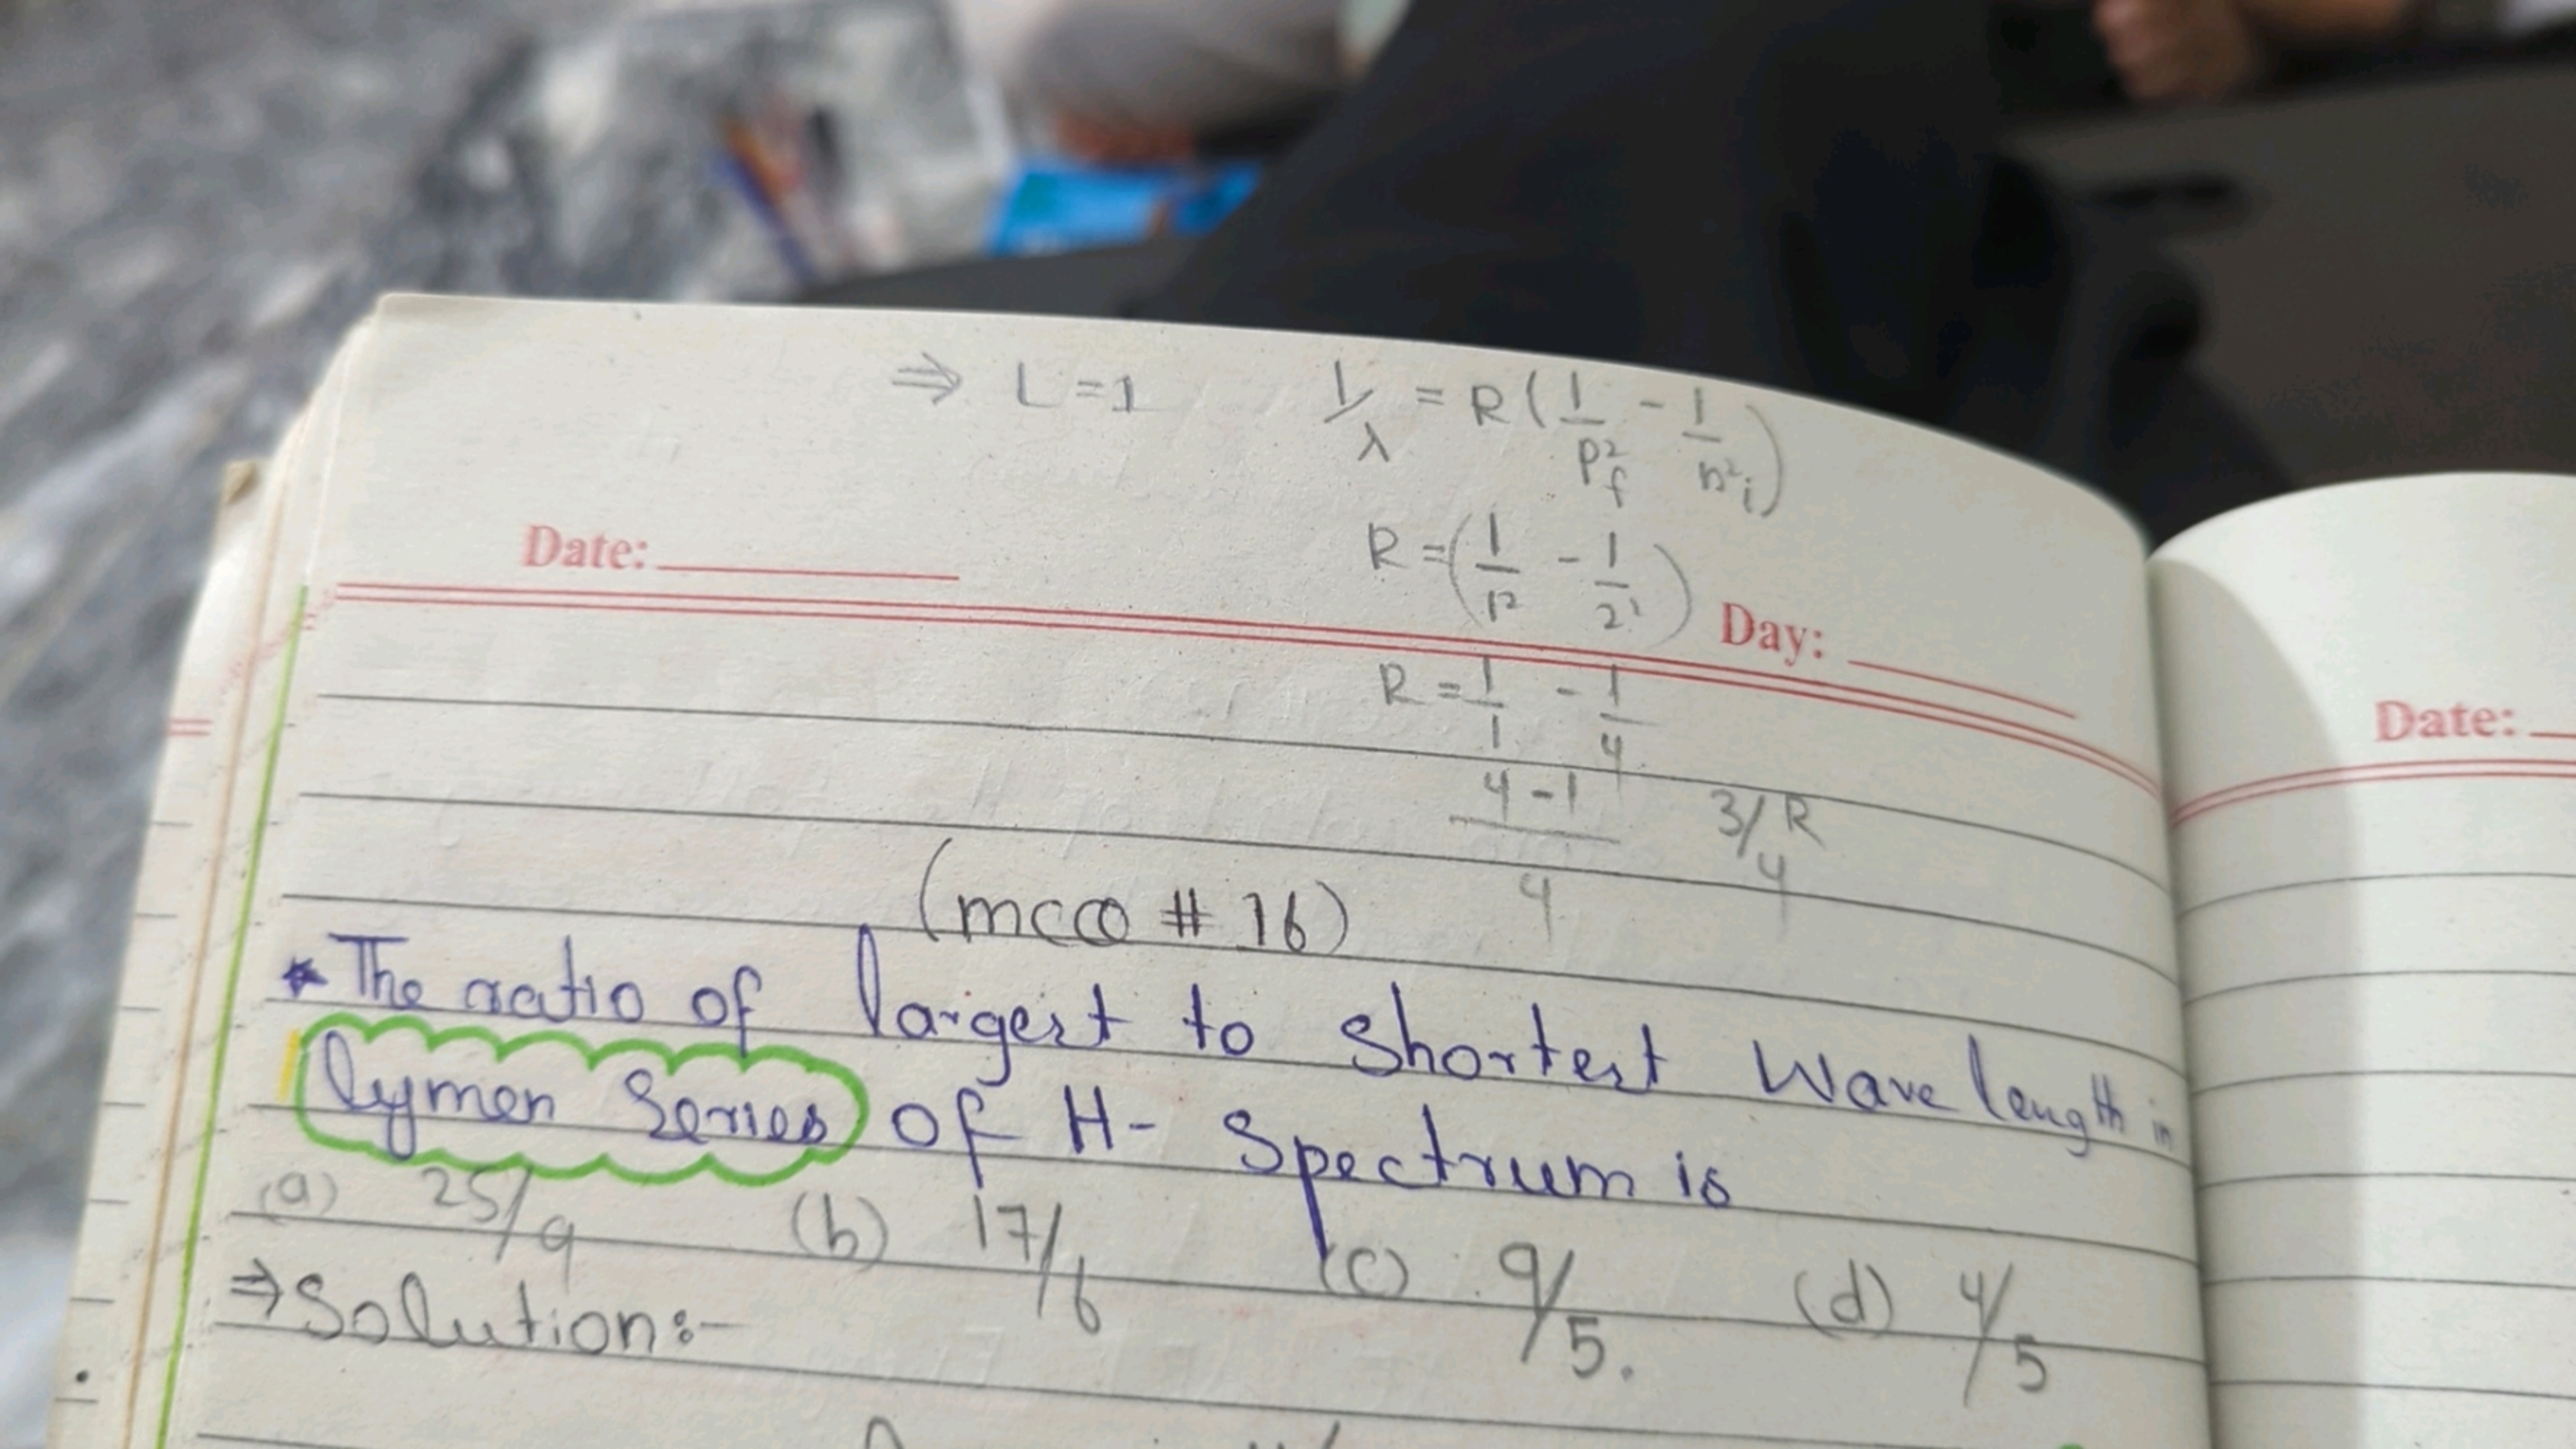 ⇒ L = 1 1/λ = R(1/p²f - 1/n²i)
Date:
R = (1/1² - 1/2²)
Day:
R = 1/1 - 1/4
Date:
4-1/4 3/4 R
(mcQ # 16)
* The ratio of largest to shortest Wave length in
lymen Series of H- Spectrum is
(a) 25/9 (b) 17/6 (c) 9/5. (d) 4/5
⇒ Solution:-